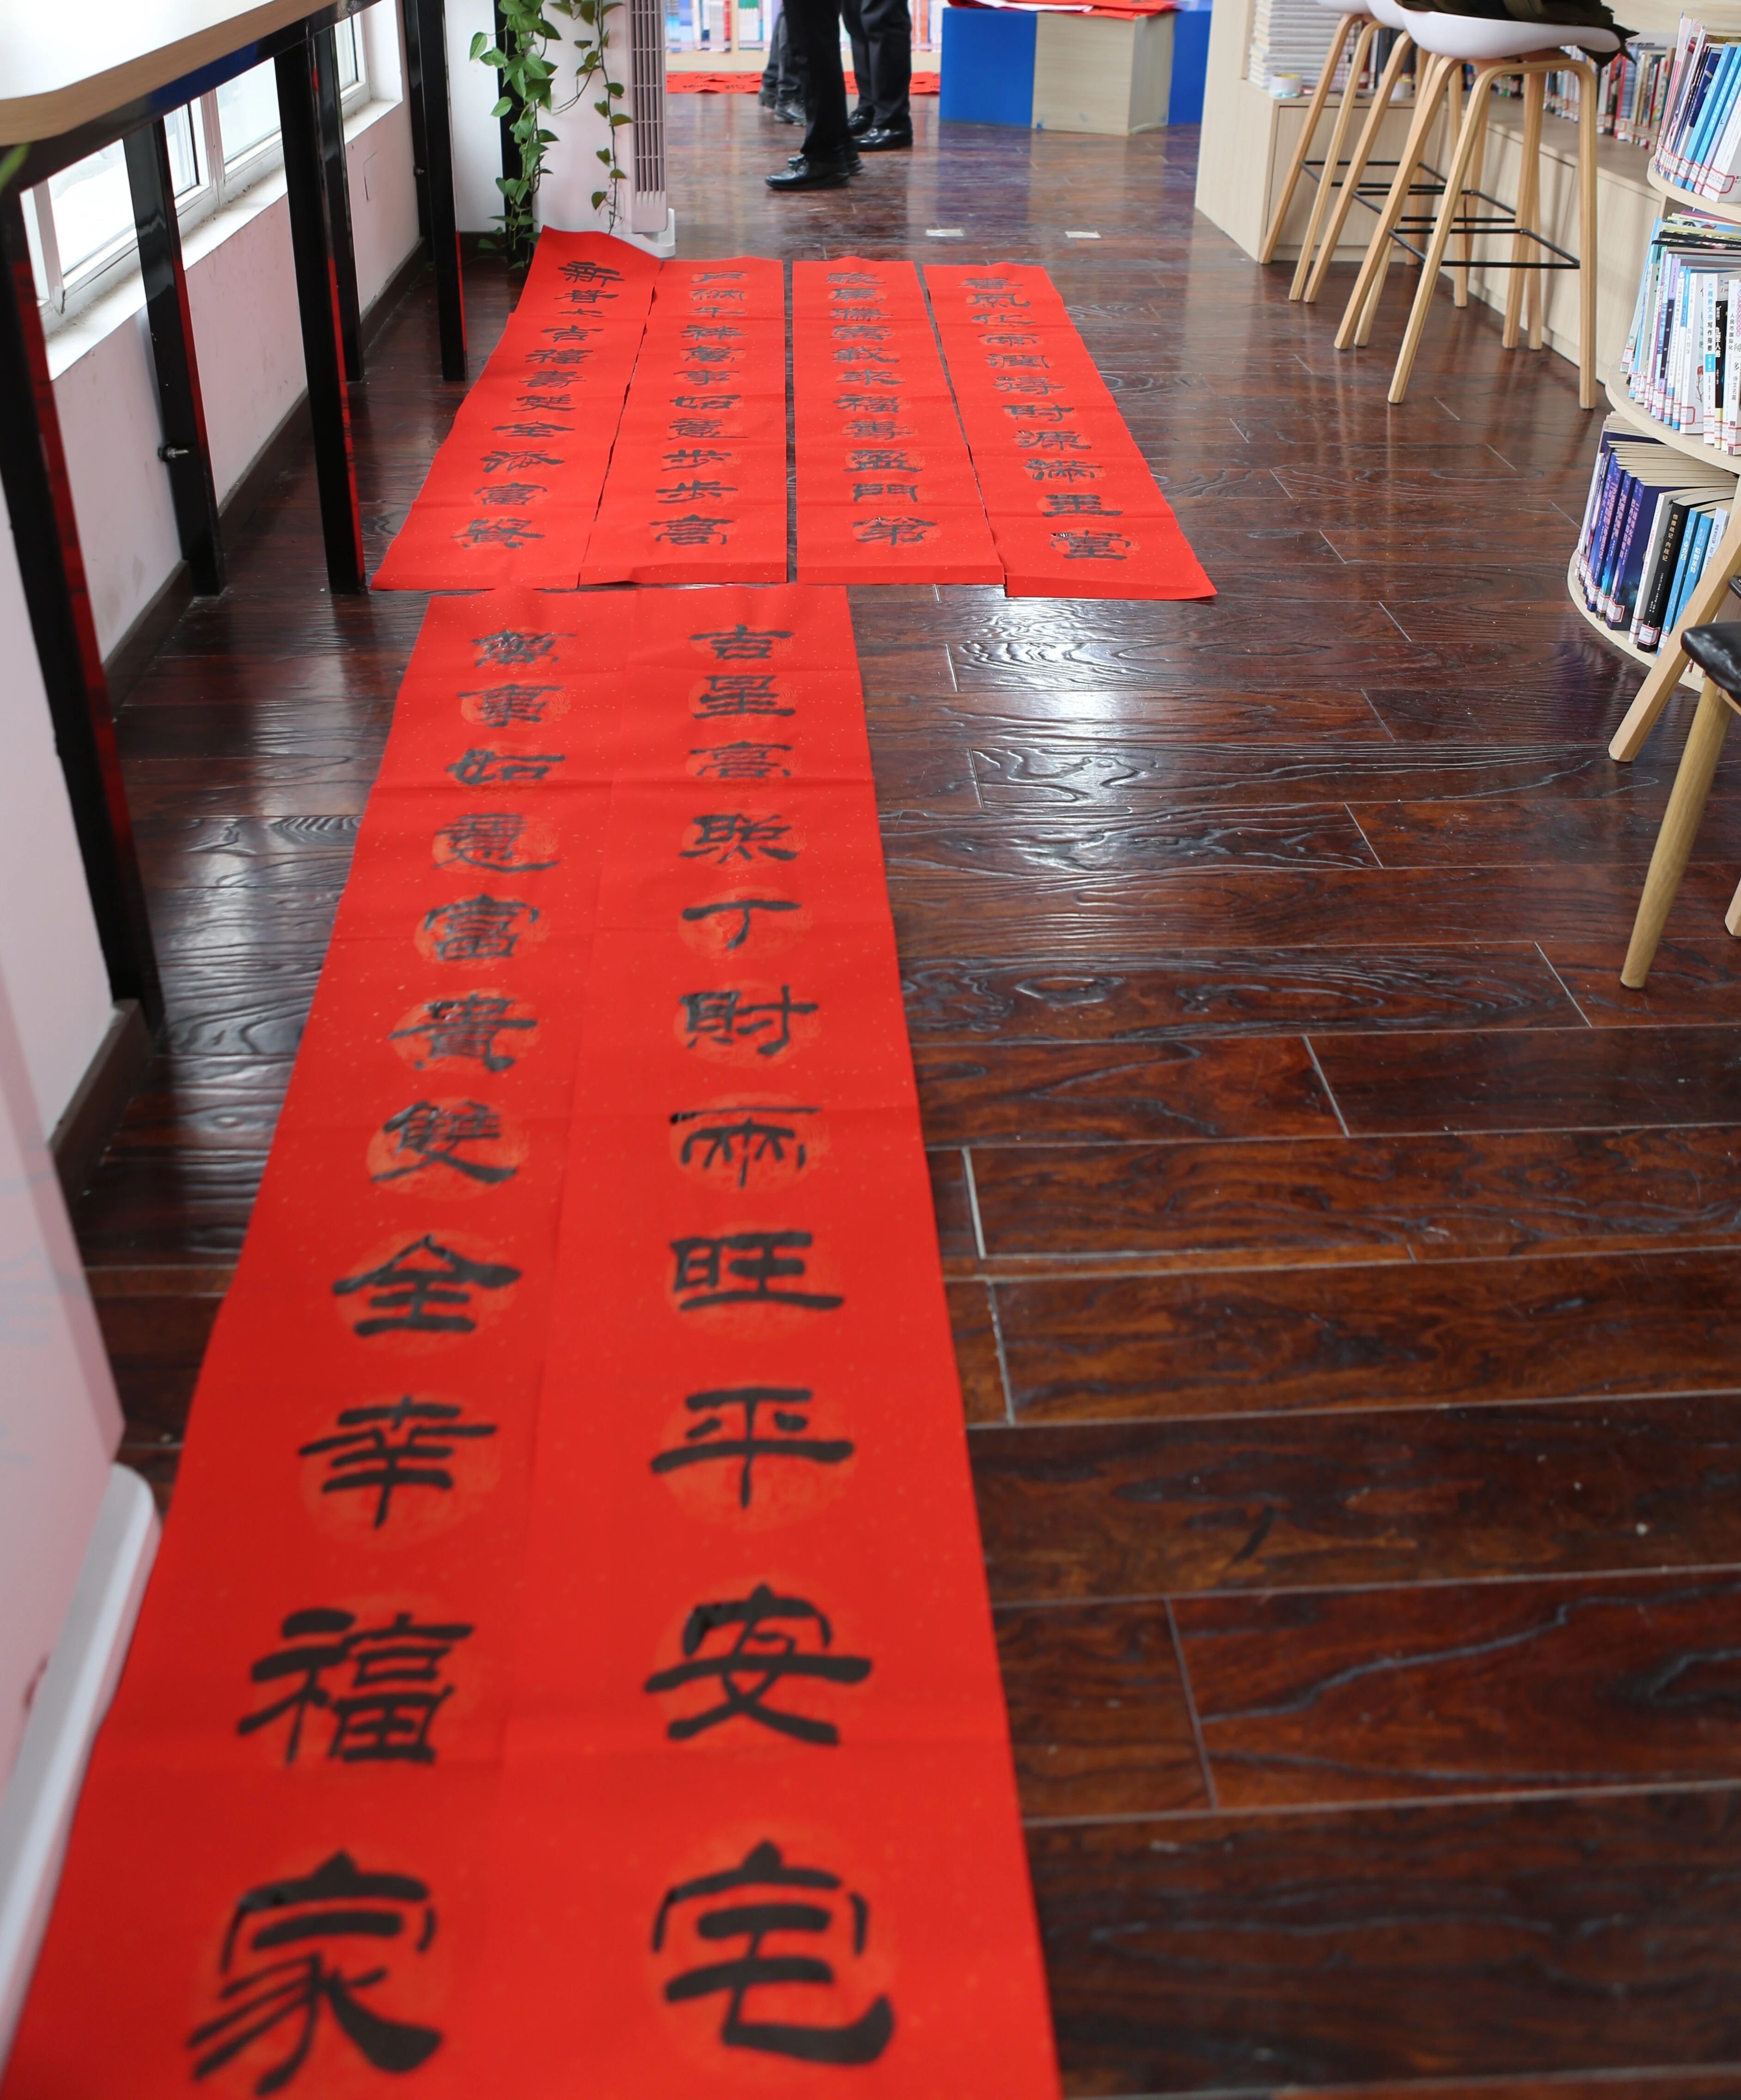 春風化雨潤得財源滿玉堂
駿馬雲載來福壽盈門第
戶納千祥萬事如意步步高
新春大吉福壽雙全添富貴
吉星高照丁財兩旺平安宅
萬事如意富貴雙全幸福家